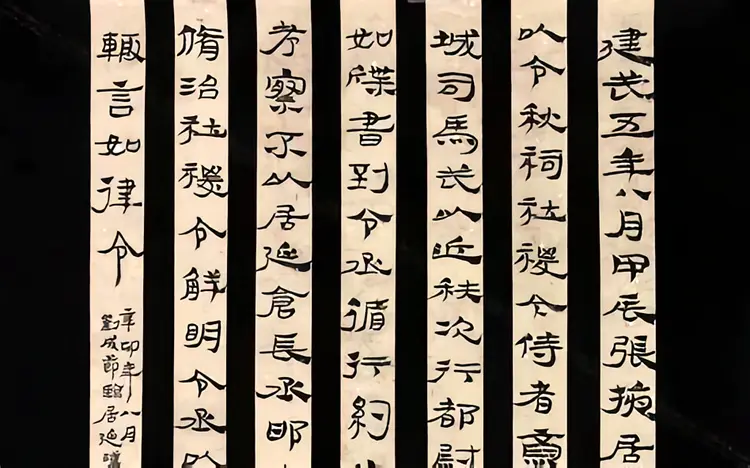 建武五年八月甲辰張掖居
以令秋祠社稷今侍者齋
城司馬武以近秩次行都尉
如牒書到令丞循行約
考察不以居延倉長丞邯
脩治社稷令鮮明令丞以
輒言如律令
辛卯年八月
劉成節臨居延